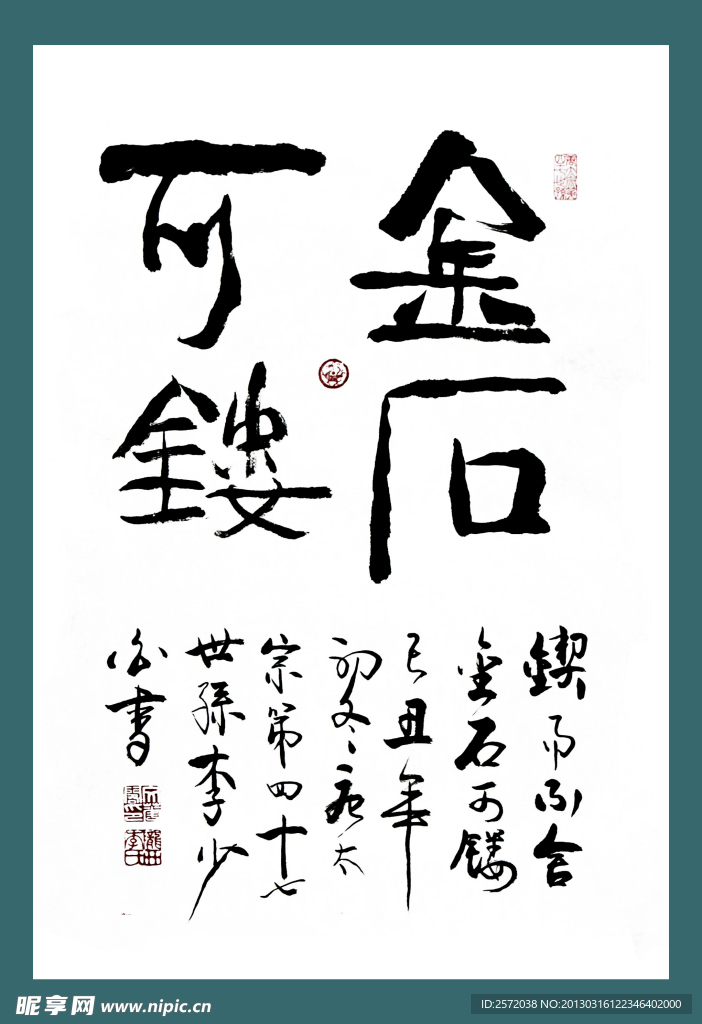 金石
可鏤
鍥而不舍
金石可鏤
己丑年
初冬唐太
宗第四十七
世孫李少
白書
昵享网 www.nipic.cn
ID:2572038 NO:20130316122346402000